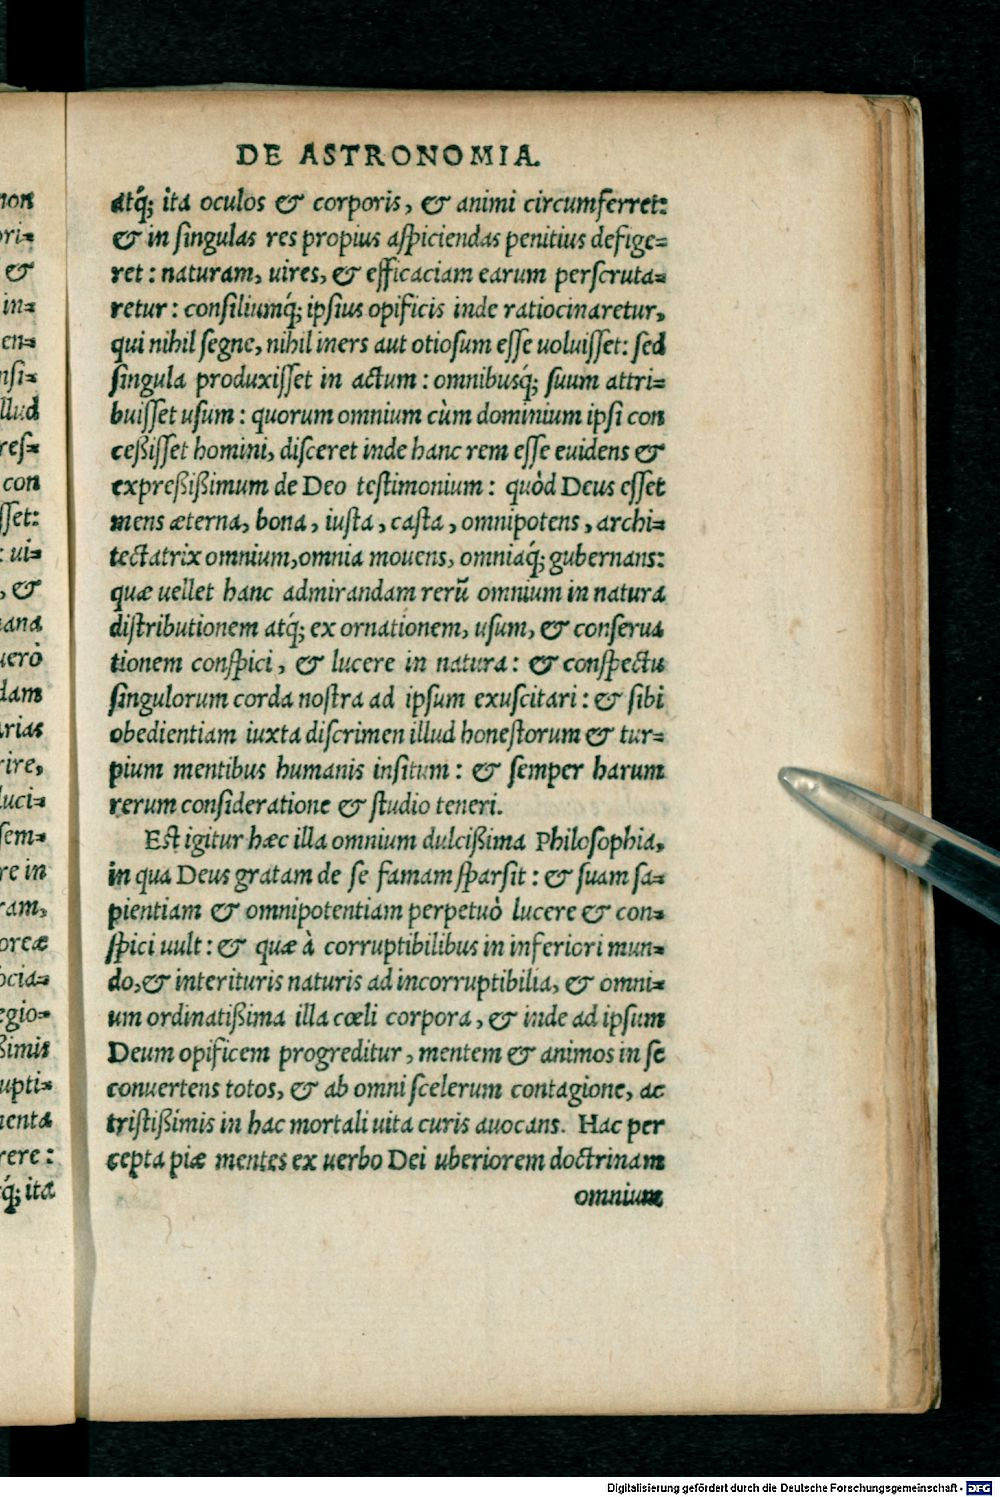 DE ASTRONOMIA.
atq́; ita oculos & corporis, & animi circumferret:
& in ſingulas res propius aſpiciendas penitius defige=
ret: naturam, uires, & efficaciam earum perſcruta=
retur: conſiliumq́; ipſius opificis inde ratiocinaretur,
qui nihil ſegne, nihil iners aut otioſum eſſe uoluiſſet: ſed
ſingula produxiſſet in actum: omnibusq́; ſuum attri=
buiſſet uſum: quorum omnium cùm dominium ipſi con
ceßiſſet homini, diſceret inde hanc rem eſſe euidens &
expreßißimum de Deo teſtimonium: quòd Deus eſſet
mens æterna, bona, iuſta, caſta, omnipotens, archi=
tectatrix omnium, omnia mouens, omniaq́; gubernans:
quæ uellet hanc admirandam rerū omnium in natura
diſtributionem atq́; ex ornationem, uſum, & conſerua
tionem conſpici, & lucere in natura: & conſpectu
ſingulorum corda noſtra ad ipſum exuſcitari: & ſibi
obedientiam iuxta diſcrimen illud honeſtorum & tur=
pium mentibus humanis inſitum: & ſemper harum
rerum conſideratione & ſtudio teneri.
Eſt igitur hæc illa omnium dulcißima Philoſophia,
in qua Deus gratam de ſe famam ſparſit: & ſuam ſa=
pientiam & omnipotentiam perpetuò lucere & con=
ſpici uult: & quæ à corruptibilibus in inferiori mun=
do, & interituris naturis ad incorruptibilia, & omni=
um ordinatißima illa cœli corpora, & inde ad ipſum
Deum opificem progreditur, mentem & animos in ſe
conuertens totos, & ab omni ſcelerum contagione, ac
triſtißimis in hac mortali uita curis auocans. Hac per
cepta piæ mentes ex uerbo Dei uberiorem doctrinam
omnium
Digitalisierung gefördert durch die Deutsche Forschungsgemeinschaft - DFG